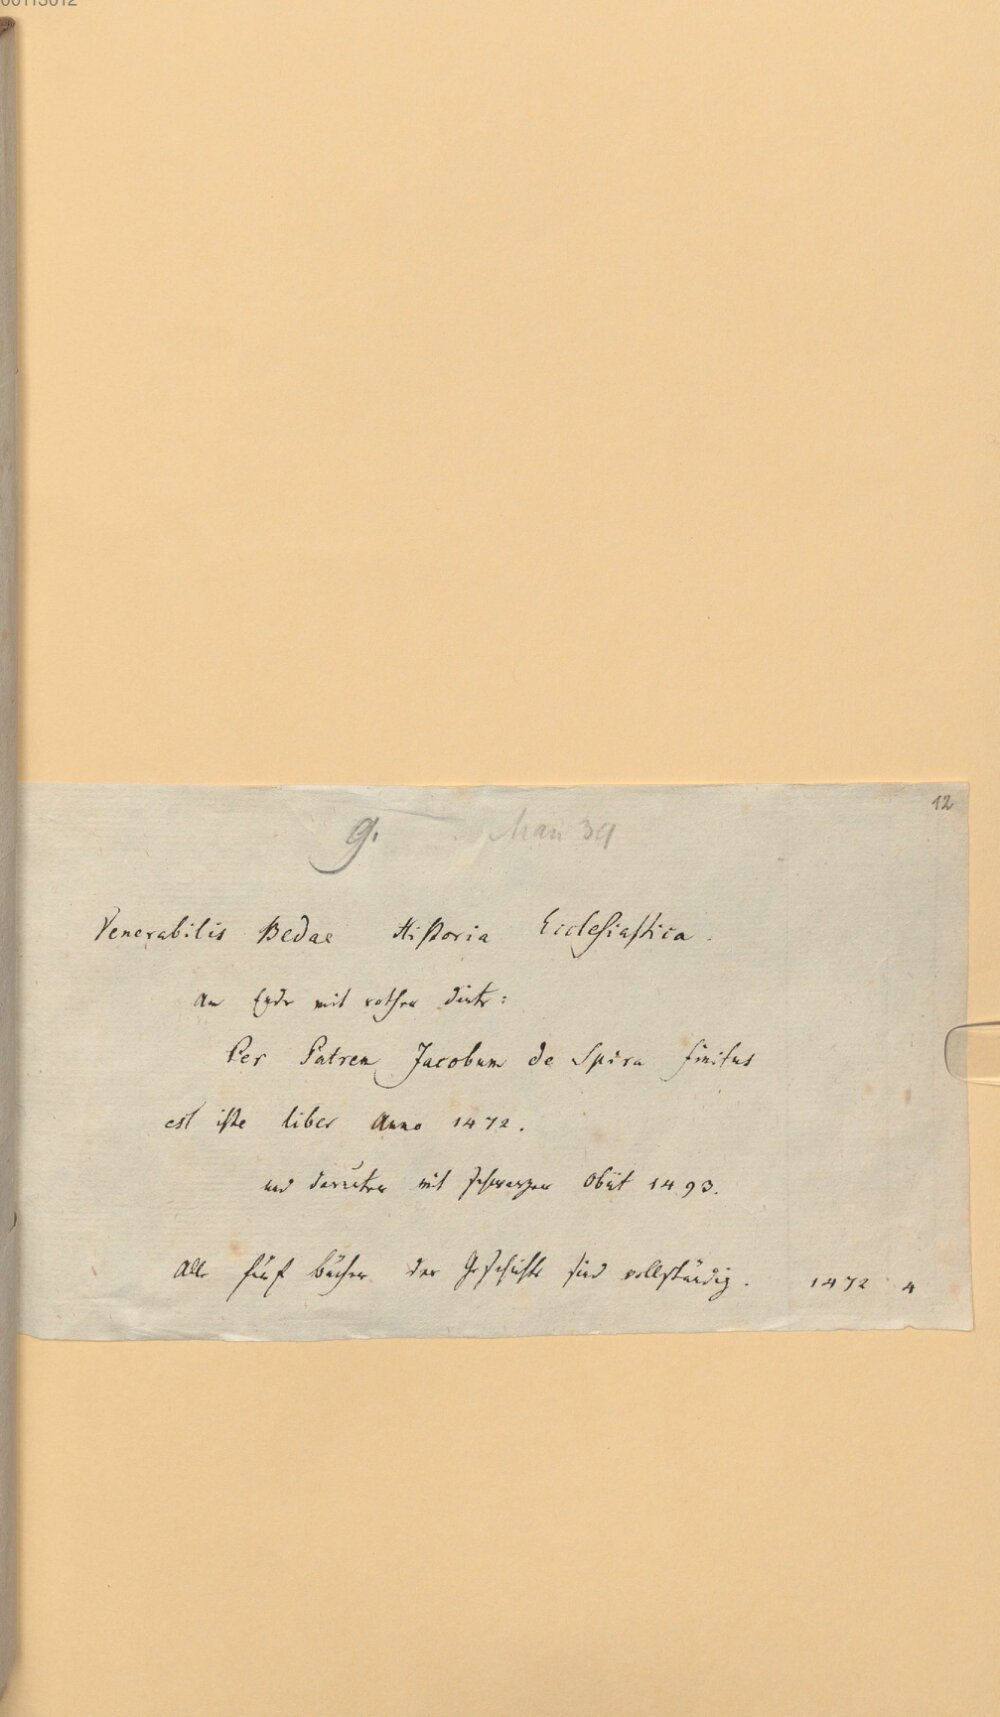 00113012
12
g.
Man 39
Venerabilis Bedae Historia Ecclesiastica.
Am Ende mit rother Dinte:
Per Patrem Jacobum de Spira finitus
est iste liber Anno 1472.
und darunter mit schwarzer Obiit 1493.
Alle fünf bücher der Geschichte sind vollständig. 1472 4